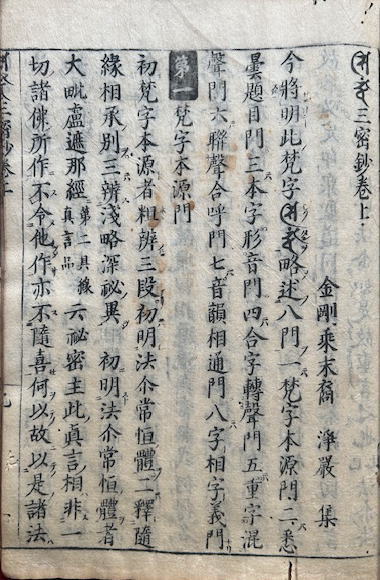 𑖭𑖰𑖟𑖿𑖠𑖽三密鈔卷上
金剛乘末裔 淨嚴 集
今將明此梵字𑖭𑖰𑖟𑖿𑖠𑖽略述八門一梵字本源門二悉
曇題目門三本字形音門四合字轉聲門五重字混
聲門六聯聲合呼門七音韻相通門八字相字義門
第一 梵字本源門
初梵字本源者粗辨三段初明法尒常恒體二釋隨
緣相承別三辨淺略深祕異 初明法尒常恒體者
大毗盧遮那經第二具緣真言品云祕密主此眞言相非一
切諸佛所作不令他作亦不隨喜何以故以是諸法
三密鈔卷上